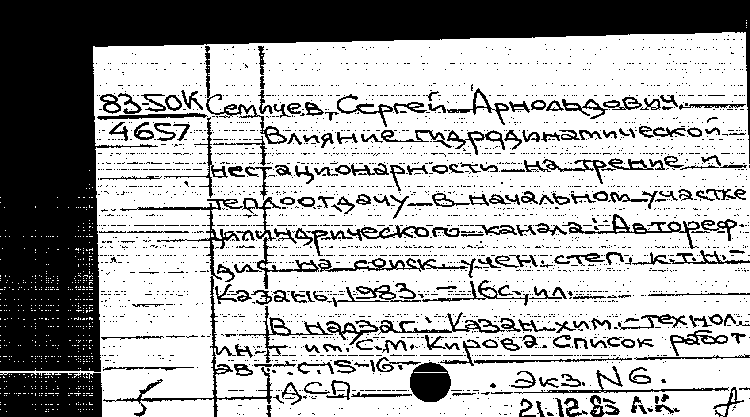 83-50К Семичев, Сергей Арнольдович.
4657 Влияние гидродинамической
нестационарности на трение и
теплоотдачу в начальном участке
цилиндрического канала: Автореф.
дис. на соиск. учен. степ. к.т.н.-
Казань, 1983. - 16с., ил.
В надзаг.: Казан. хим.-технол.
ин-т им. С.М. Кирова. Список работ
авт.: с.15-16.
ДСП. Экз. N6.
21.12.83 А.К.